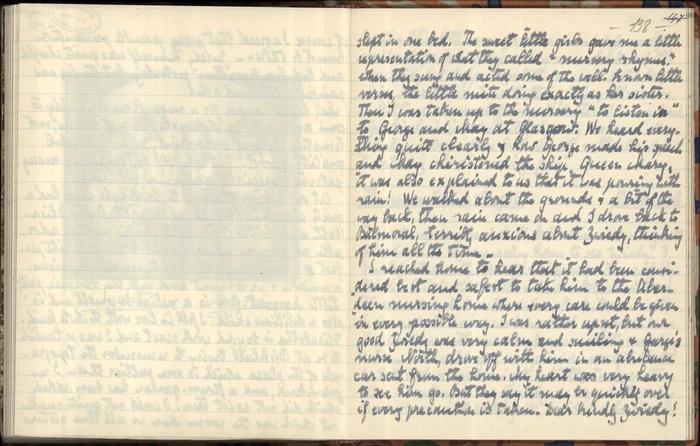 - 138 -
slept in one bed. The sweet little girls gave me a little
representation of what they called "nursery rhymes"
when they sang and acted some of the well known little
verses, the little mite doing exactly as her sister.
Then I was taken up to the nursery "to listen in"
to George and May at Glasgow. We heard every-
thing quite clearly & how George made his speech
and May christened the ship Queen Mary,
it was also explained to us that it was pouring with
rain! We walked about the grounds & a bit of the
way back, then rain came on and I drove back to
Balmoral, terribly anxious about Zwiedy, thinking
of him all the time.
I reached home to hear that it had been consi-
dered best and safest to take him to the Aber-
deen nursing home where every care could be given
in every possible way. I was rather upset, but our
good Zwiedy was very calm and smiling & George's
nurse North, drove off with him in an ambulance
car sent from the home. My heart was very heavy
to see him go. But they say it may be quickly over
if every precaution is taken. Dear kindly Zwiedy!